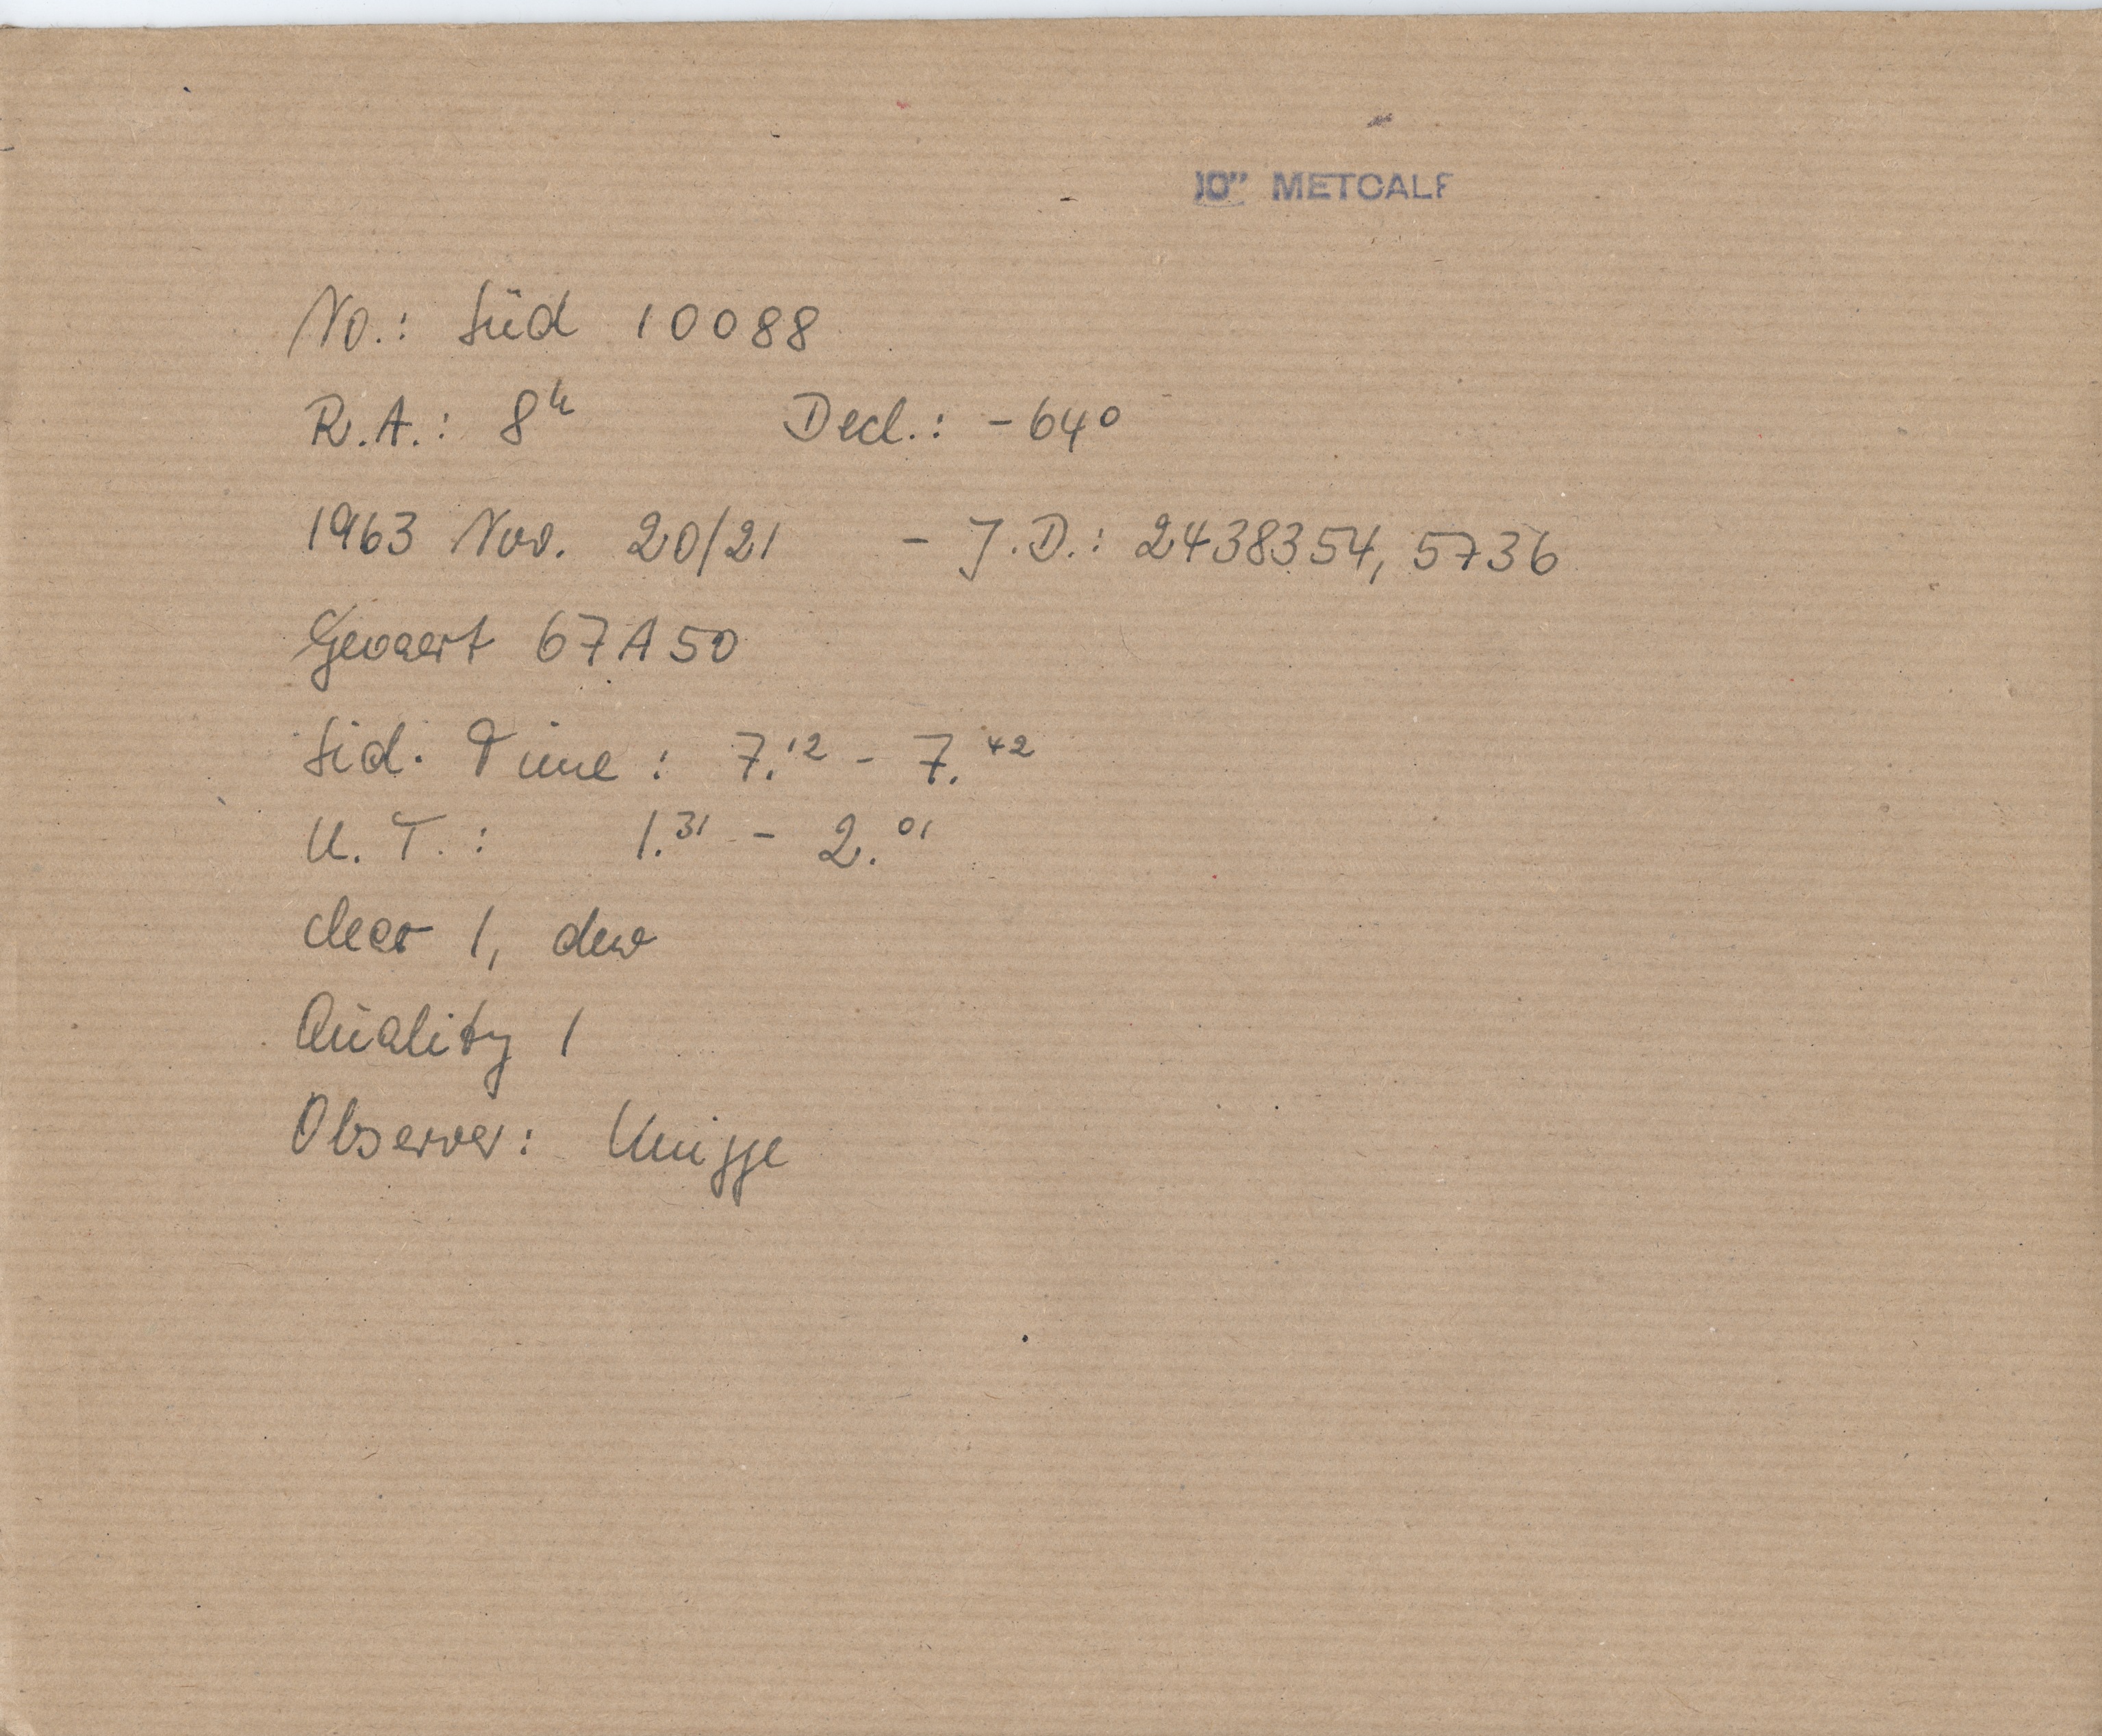 10" METCALF
No.: Süd 10088
R.A.: 8ʰ Decl.: -64°
1963 Nov. 20/21 - J.D.: 2438354,5736
Gevaert 67A50
Sid. Time: 7.¹² - 7.⁴²
U.T.: 1.³¹ - 2.⁰¹
clear 1, dew
Quality 1
Observer: Knigge